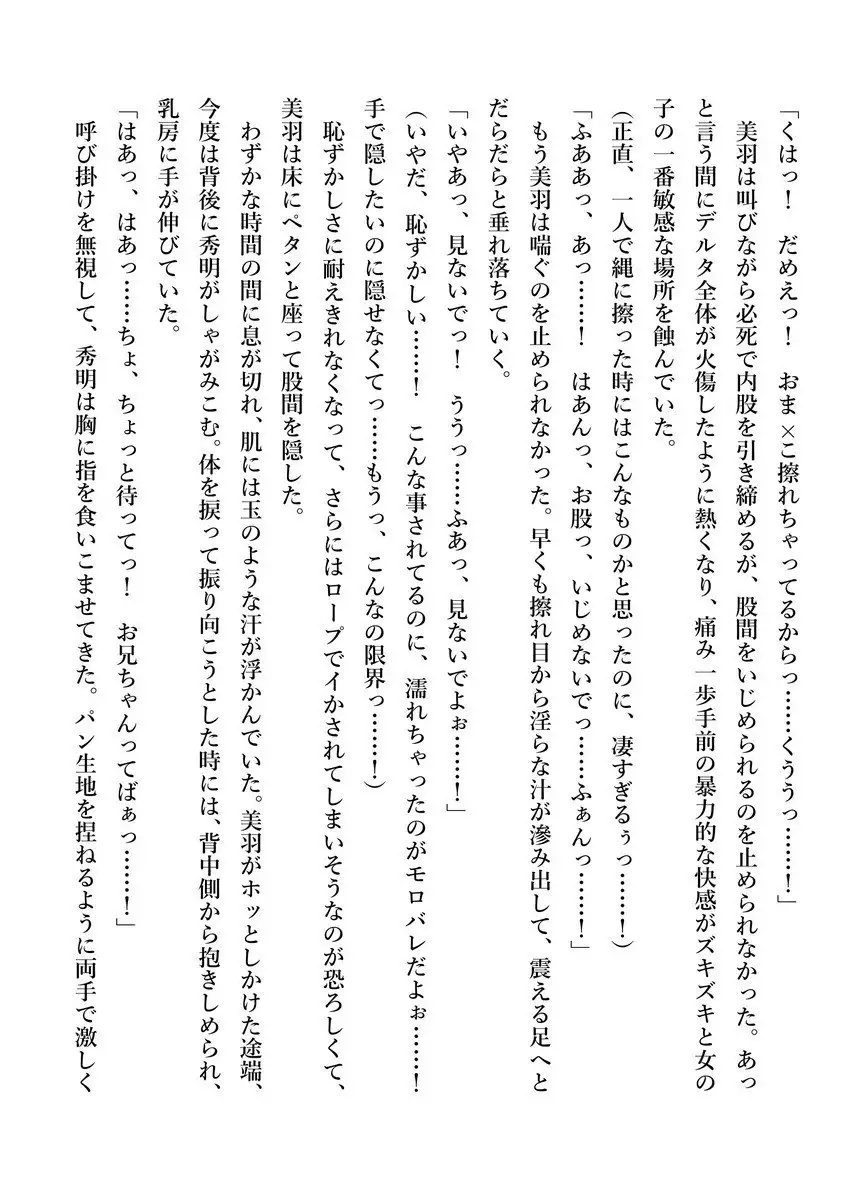 「くはっ！　だめえっ！　おま×こ擦れちゃってるからっ……くううっ……！」
　美羽は叫びながら必死で内股を引き締めるが、股間をいじめられるのを止められなかった。あっ
と言う間にデルタ全体が火傷したように熱くなり、痛み一歩手前の暴力的な快感がズキズキと女の
子の一番敏感な場所を蝕んでいた。
（正直、一人で縄に擦った時にはこんなものかと思ったのに、凄すぎるぅっ……！）
「ふああっ、あっ……！　はあんっ、お股っ、いじめないでっ……ふぁんっ……！」
　もう美羽は喘ぐのを止められなかった。早くも擦れ目から淫らな汁が滲み出して、震える足へと
だらだらと垂れ落ちていく。
「いやあっ、見ないでっ！　ううっ……ふあっ、見ないでよぉ……！」
（いやだ、恥ずかしい……！　こんな事されてるのに、濡れちゃったのがモロバレだよぉ……！
手で隠したいのに隠せなくてっ……もうっ、こんなの限界っ……！）
　恥ずかしさに耐えきれなくなって、さらにはロープでイかされてしまいそうなのが恐ろしくて、
美羽は床にペタンと座って股間を隠した。
　わずかな時間の間に息が切れ、肌には玉のような汗が浮かんでいた。美羽がホッとしかけた途端、
今度は背後に秀明がしゃがみこむ。体を捩って振り向こうとした時には、背中側から抱きしめられ、
乳房に手が伸びていた。
「はあっ、はあっ……ちょ、ちょっと待ってっ！　お兄ちゃんってばぁっ……！」
　呼び掛けを無視して、秀明は胸に指を食いこませてきた。パン生地を捏ねるように両手で激しく